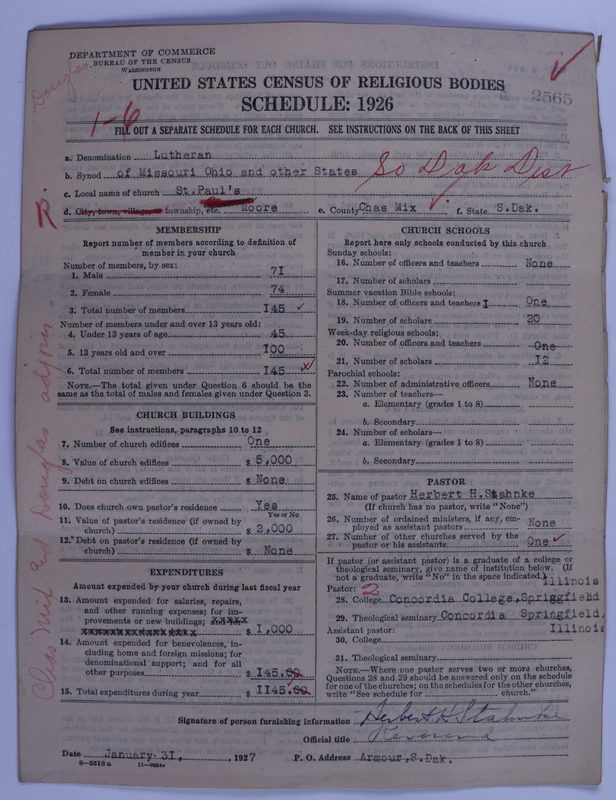 DEPARTMENT OF COMMERCE
BUREAU OF THE CENSUS
WASHINGTON
UNITED STATES CENSUS OF RELIGIOUS BODIES
SCHEDULE: 1926
2565
1-6
FILL OUT A SEPARATE SCHEDULE FOR EACH CHURCH. SEE INSTRUCTIONS ON THE BACK OF THIS SHEET
a. Denomination Lutheran
b. Synod of Missouri Ohio and other States So Dak Dist
c. Local name of church St.Paul's
d. City, town, village, or township, etc. Moore e. County Chas Mix f. State S.Dak.
R.
Chas Mix and Douglas adjoin -
Douglas
MEMBERSHIP
Report number of members according to definition of
member in your church
Number of members, by sex:
1. Male 71
2. Female 74
3. Total number of members 145
Number of members under and over 13 years old:
4. Under 13 years of age 45
5. 13 years old and over 100
6. Total number of members 145
NOTE.—The total given under Question 6 should be the
same as the total of males and females given under Question 3.
CHURCH BUILDINGS
See instructions, paragraphs 10 to 12
7. Number of church edifices One
8. Value of church edifices $ 5,000
9. Debt on church edifices $ None
10. Does church own pastor's residence Yes
Yes or No
11. Value of pastor's residence (if owned by
church) $ 2,000
12. Debt on pastor's residence (if owned by
church) $ None
EXPENDITURES
Amount expended by your church during last fiscal year
13. Amount expended for salaries, repairs,
and other running expenses; for im-
provements or new buildings; xxxxx
xxxxxxxxxxxxxxxxxx $ 1,000
14. Amount expended for benevolences, in-
cluding home and foreign missions; for
denominational support; and for all
other purposes $ 145.
15. Total expenditures during year $ 1145.
CHURCH SCHOOLS
Report here only schools conducted by this church
Sunday schools:
16. Number of officers and teachers None
17. Number of scholars
Summer vacation Bible schools:
18. Number of officers and teachers One
19. Number of scholars 20
Week-day religious schools:
20. Number of officers and teachers One
21. Number of scholars 12
Parochial schools:
22. Number of administrative officers None
23. Number of teachers—
a. Elementary (grades 1 to 8)
b. Secondary
24. Number of scholars—
a. Elementary (grades 1 to 8)
b. Secondary
PASTOR
25. Name of pastor Herbert H.Stahnke
(If church has no pastor, write "None")
26. Number of ordained ministers, if any, em-
ployed as assistant pastors None
27. Number of other churches served by the
pastor or his assistants One
If pastor (or assistant pastor) is a graduate of a college or
theological seminary, give name of institution below. (If
not a graduate, write "No" in the space indicated.) Illinois
Pastor: 2
28. College Concordia College,Spriggfiehd
29. Theological seminary Concordia Springfield,
Assistant pastor: Illinois
30. College
31. Theological seminary
NOTE.—Where one pastor serves two or more churches,
Questions 28 and 29 should be answered only on the schedule
for one of the churches; on the schedules for the other churches,
write "See schedule for church."
Signature of person furnishing information Herbert H Stahnke
Official title Reverend
Date January 31, , 1927 P. O. Address Armour,S.Dak.
8-5516a